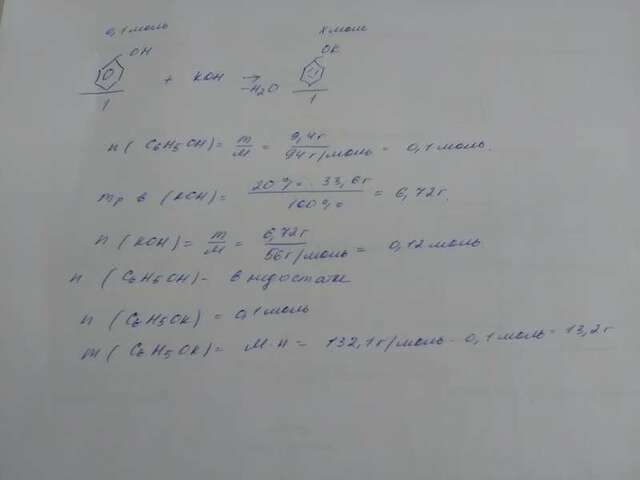 0,1 моль х моль
OH OK
+ KOH → -H2O
1 1
n ( C6H5OH) = m/M = 9,4г / 94 г/моль = 0,1 моль.
mр в (KOH) = 20 % · 33,6 г / 100 % = 6,72 г.
n ( KOH) = m/M = 6,72 г / 56 г/моль = 0,12 моль
n ( C6H5OH) - в недостатке
n ( C6H5OK) = 0,1 моль
m ( C6H5OK) = M·n = 132,1 г/моль · 0,1 моль = 13,2 г